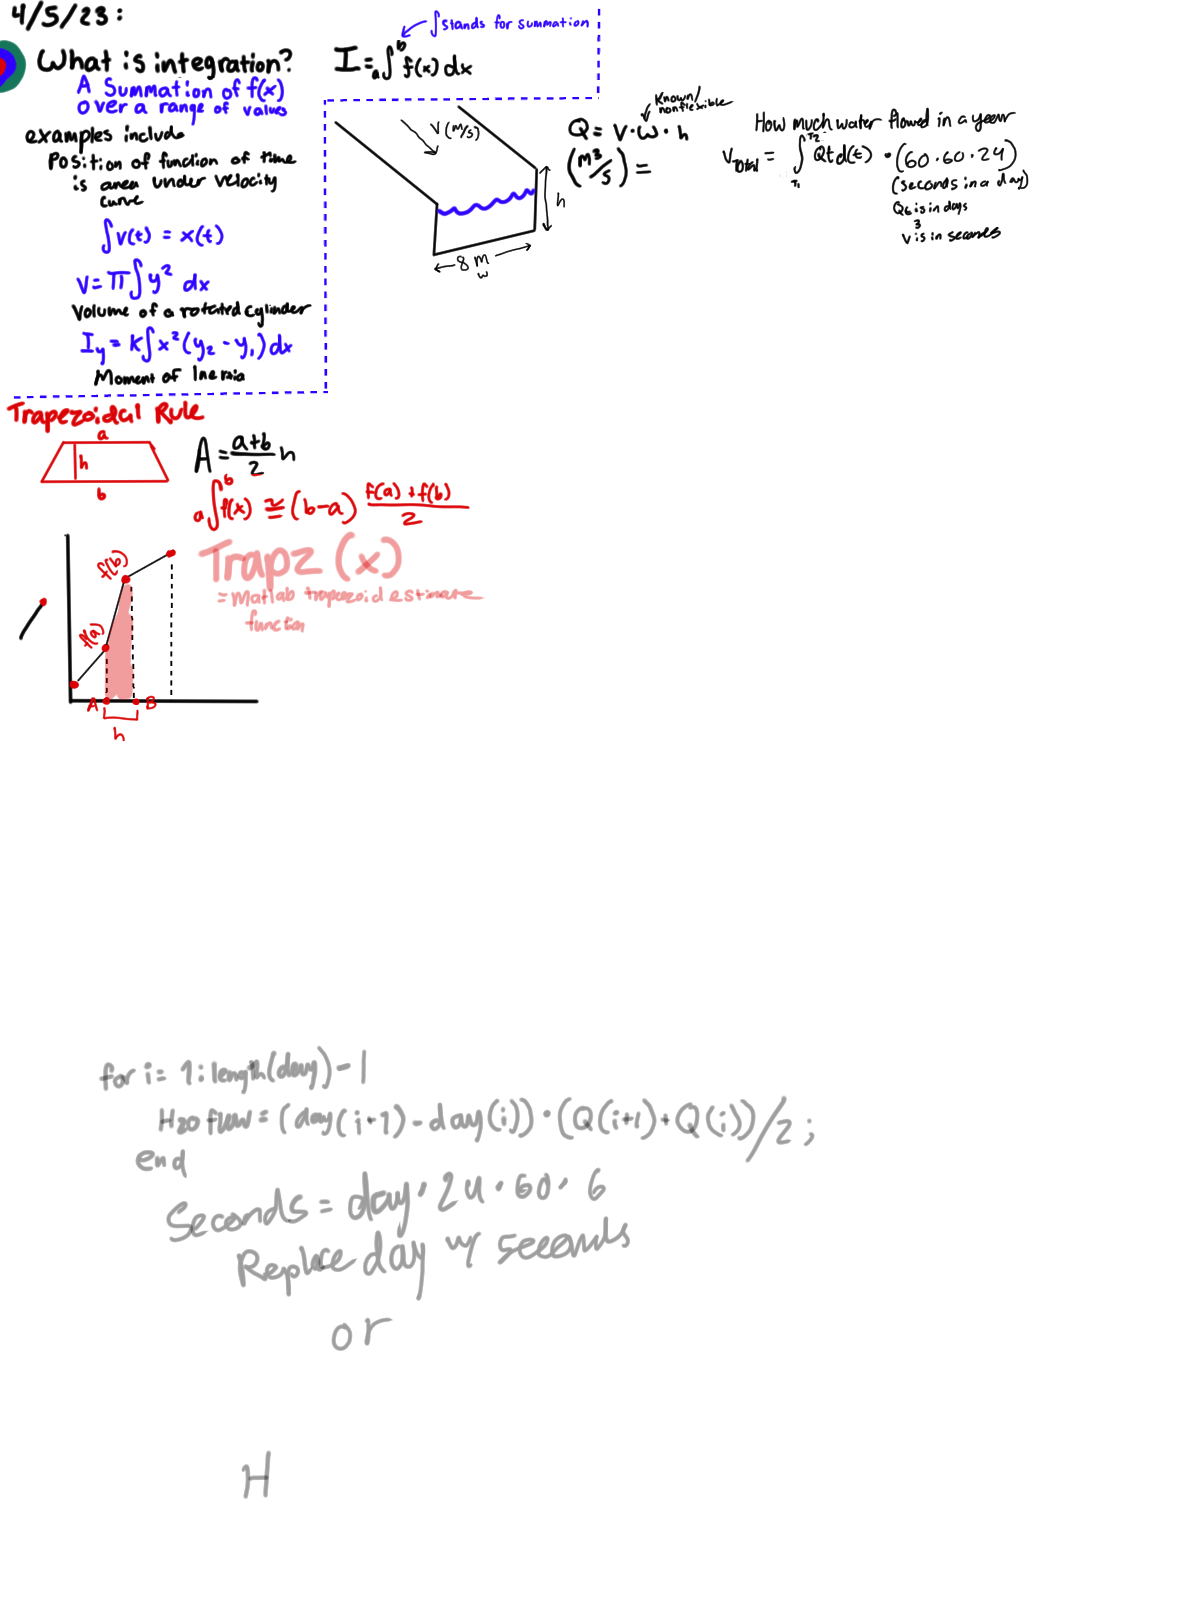 4/5/23:
What is integration?
A Summation of f(x)
over a range of values
I = a∫b f(x) dx
∫ stands for summation
examples include
Position of function of time
is area under velocity
curve
∫v(t) = x(t)
V = π∫y² dx
Volume of a rotated cylinder
Iy = k∫x²(y₂ - y₁)dx
Moment of Ineria
V (m/s)
h
8 m
w
Known/
nonflexible
Q = V·w·h
(m³/s) =
How much water flowed in a year
VTotal = ∫T1T2 Qt d(t) • (60·60·24)
(seconds in a day)
Qt is in days
3
V is in seconds
Trapezoidal Rule
a
h
b
A = a+b/2 h
a∫b f(x) ≅ (b-a) f(a) + f(b)/2
Trapz (x)
= Matlab trapezoid estimate
function
f(b)
f(a)
A B
h
for i = 1:length(day) - 1
H20 flow = (day(i+1) - day(i)) • (Q(i+1) + Q(i))/2;
end
Seconds = day • 24 • 60 • 6
Replace day w/ seconds
or
H